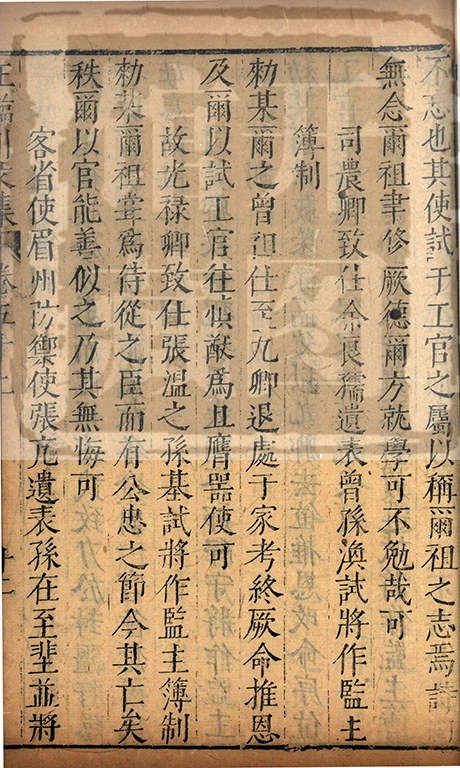 不忘也其使試于工官之屬以稱爾祖之志焉詩
無念爾祖聿修厥德爾方就學可不勉哉可
司農卿致仕余良孺遺表曾孫渙試將作監主
簿制
勑某爾之曾祖仕至九卿退處于家考終厥命推恩
及爾以試工官往慎猷為且膺器使可
故光祿卿致仕張溫之孫基試將作監主簿制
勑某爾祖嘗為侍從之臣而有公忠之節今其亡矣
秩爾以官能善似之乃其無悔可
客省使眉州防禦使張亢遺表孫在至輩並將
王臨川文集 卷五十二